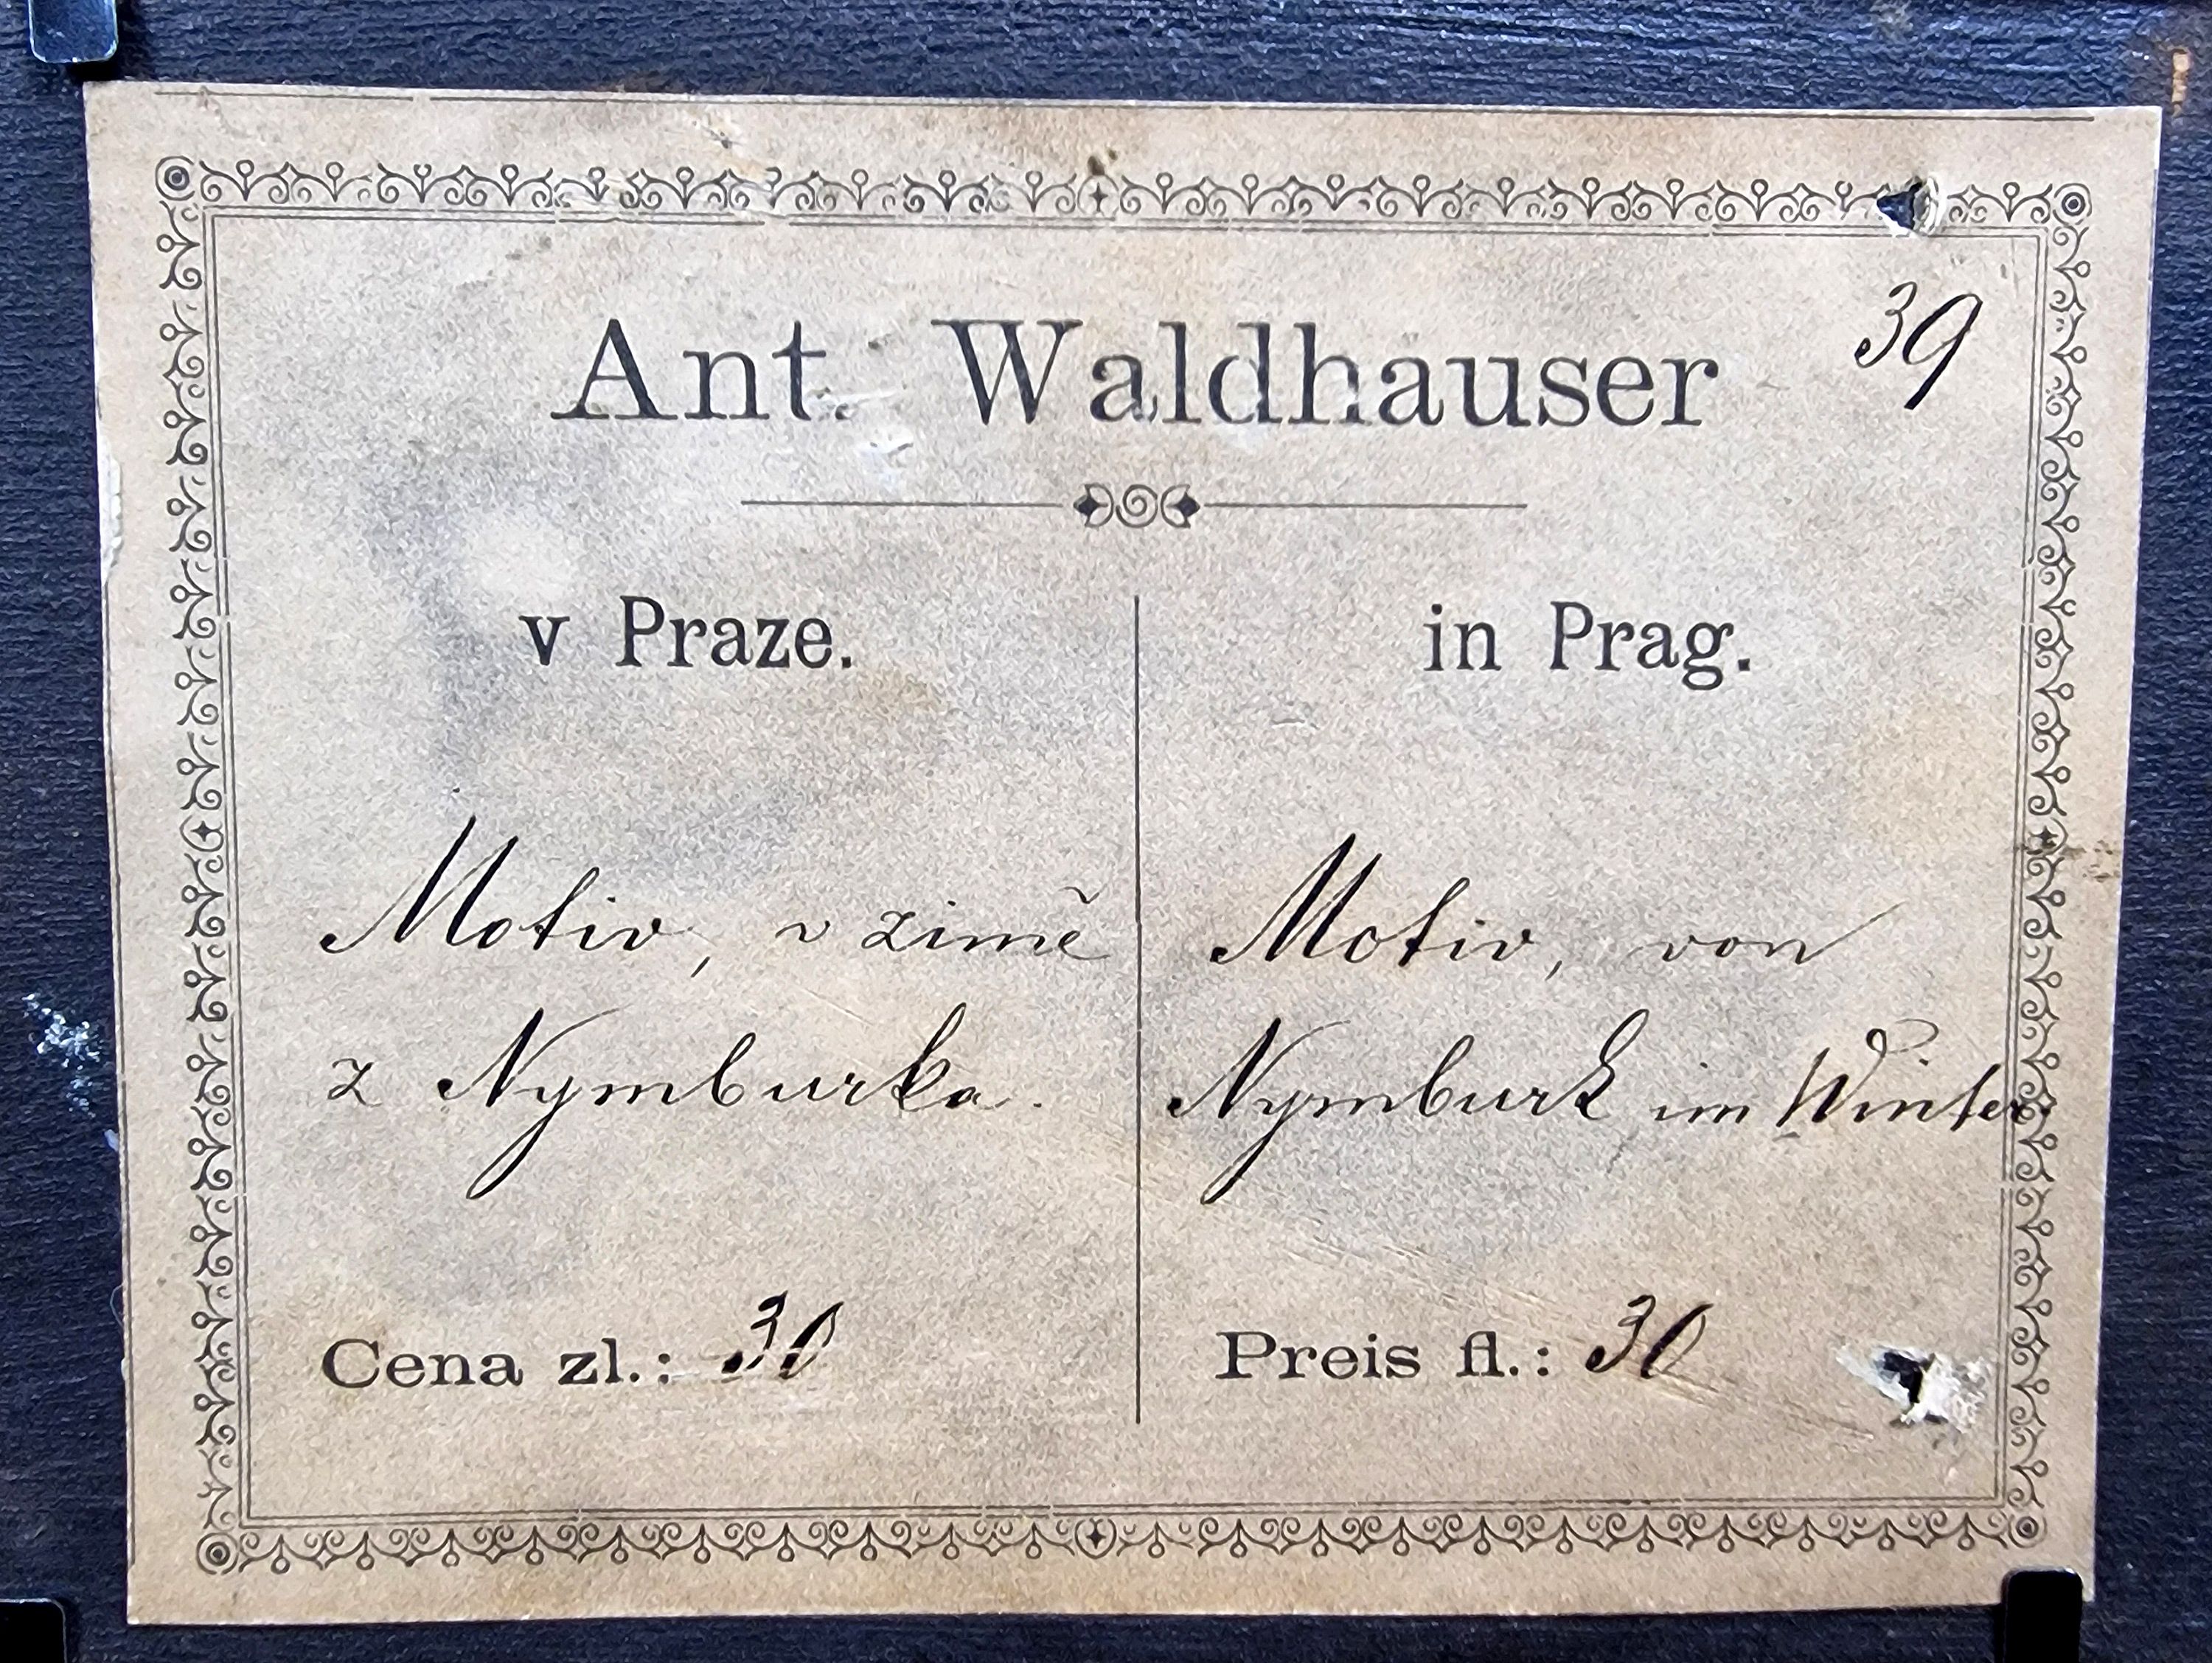 39
Ant. Waldhauser
v Praze.
Motiv, v zimě
z Nymburka.
Cena zl.: 30
in Prag.
Motiv, von
Nymburk im Winter.
Preis fl.: 30